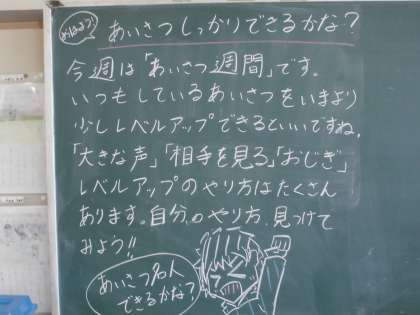 おはよう! あいさつしっかりできるかな?
今週は「あいさつ週間」です。
いつもしているあいさつをいまより
少しレベルアップできるといいですね。
「大きな声」「相手を見る」「おじぎ」
レベルアップのやり方はたくさん
あります。自分のやり方、見つけて
みよう!!
あいさつ名人
できるかな?